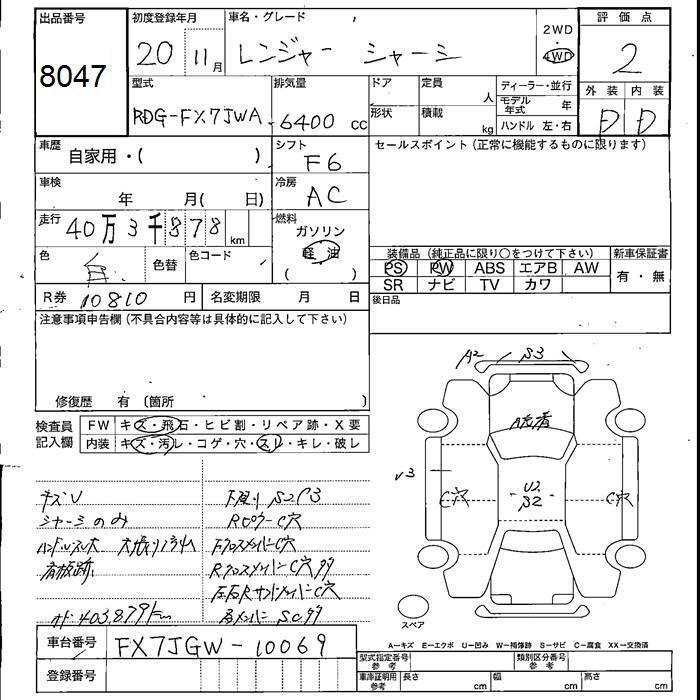 出品番号
8047
初度登録年月
20 11月
車名・グレード
レンジャー シャーシ
2WD
4WD
評価点
2
型式
RDG-FX7JWA
排気量
6400 cc
ドア
形状
定員
人
積載
kg
ディーラー・並行
モデル年式 年
ハンドル 左・右
外装 内装
D D
車歴
自家用・( )
シフト
F6
セールスポイント(正常に機能するものに限ります)
車検
年 月( 日)
冷房
AC
走行
40万3千878 km
燃料
ガソリン
軽油
( )
色
白
色替
色コード
装備品(純正品に限り○をつけて下さい)
新車保証書
PS PW ABS エアB AW
SR ナビ TV カワ
有・無
R券 10810 円
名変期限 月 日
後日品
注意事項申告欄(不具合内容等は具体的に記入して下さい)
修復歴 有 (箇所 )
検査員記入欄
FW キズ・飛石・ヒビ割・リペア跡・X要
内装 キズ・汚レ・コゲ・穴・スレ・キレ・破レ
A2 S3
U3
C穴
U2
S2
C穴
スペア
キズU
シャーシのみ
下廻り S2C3
RピラーC穴
ハンドルスレ大
FクロスメンバーC穴
看板跡
RクロスメンバーC穴
オド 403,879km
車台番号 FX7JGW-10069
登録番号
A—キズ E—エクボ U—凹み W—補修跡 S—サビ C—腐食 XX—交換済
型式指定番号 参考
類別区分番号 参考
車庫証明用 参考
長さ cm
幅 cm
高さ cm